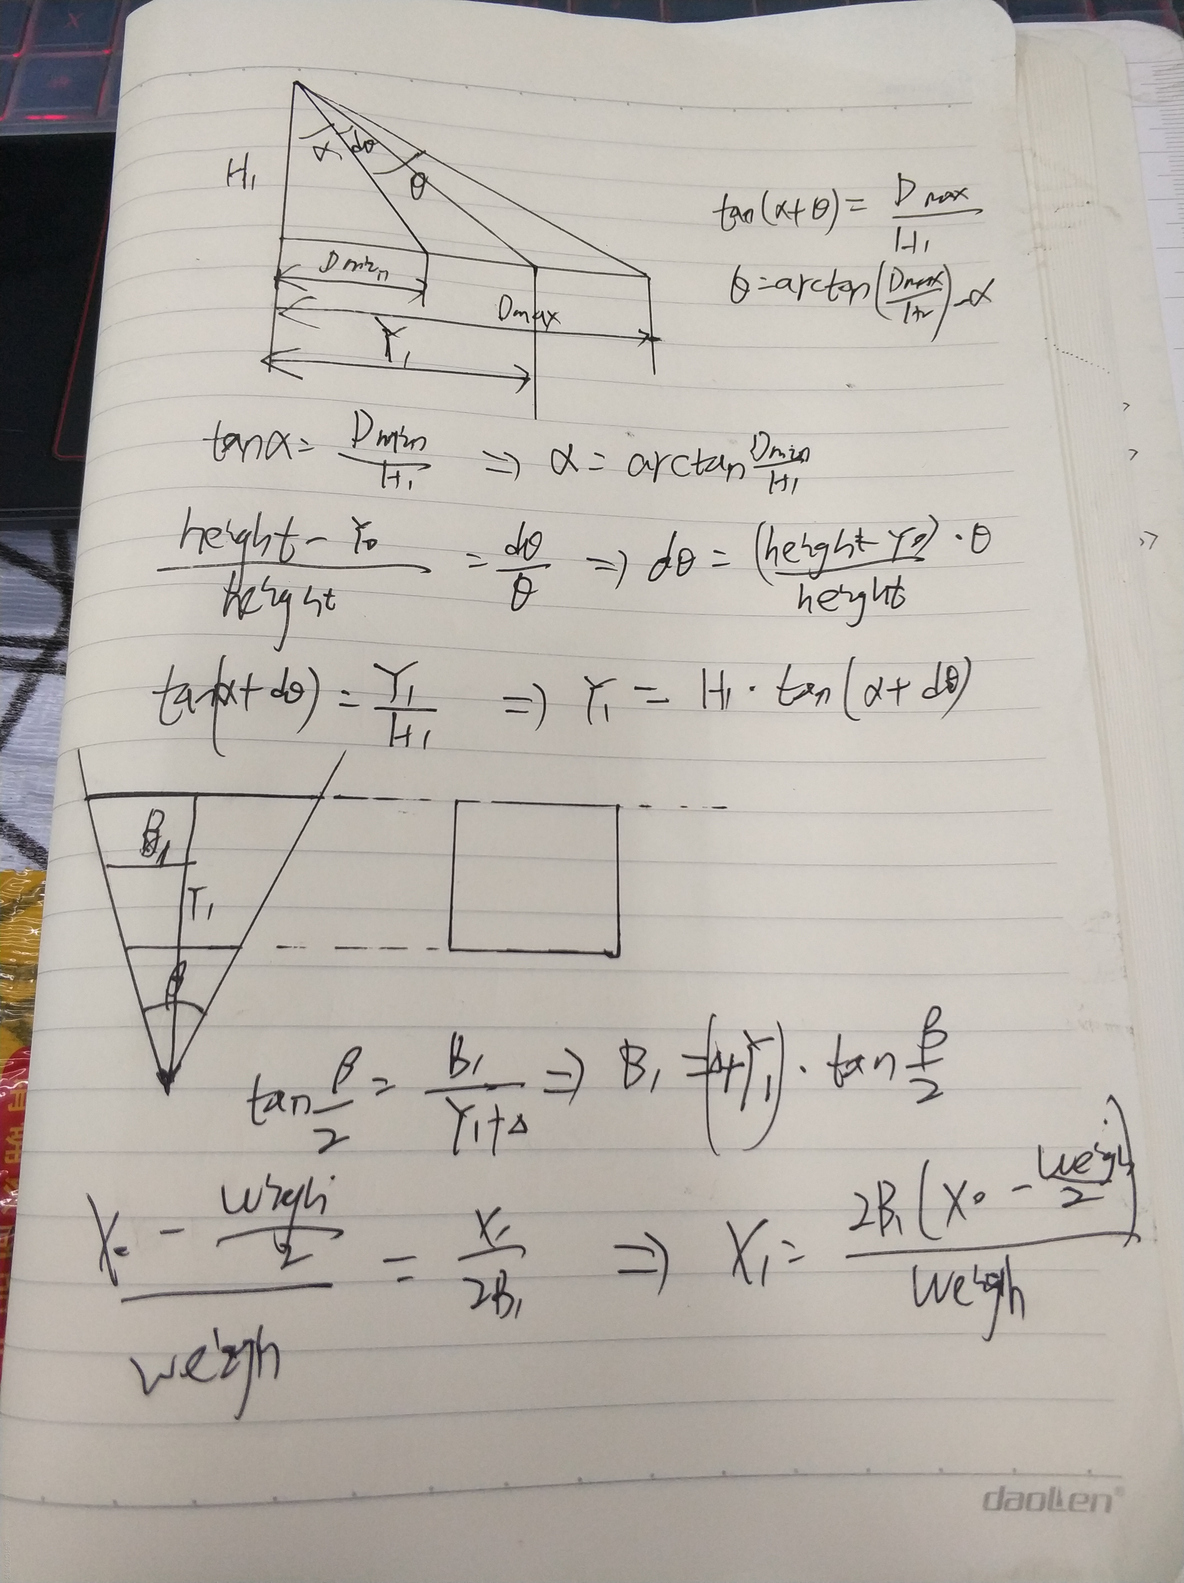 H₁
α dθ
θ
Dmin
Dmax
Y₁
tan(α+θ) = Dmax / H₁
θ = arctan(Dmax / H₁) - α
tanα = Dmin / H₁ ⇒ α = arctan Dmin / H₁
height - Y₀ / height = dθ / θ ⇒ dθ = (height - Y₀) / height · θ
tan(α + dθ) = Y₁ / H₁ ⇒ Y₁ = H₁ · tan(α + dθ)
B₁
Y₁
β
tan β/2 = B₁ / Y₁+Δ ⇒ B₁ = (Δ+Y₁) · tan β/2
X₀ - weigh/2 / weigh = X₁ / 2B₁ ⇒ X₁ = 2B₁(X₀ - weigh/2) / weigh
daoLen